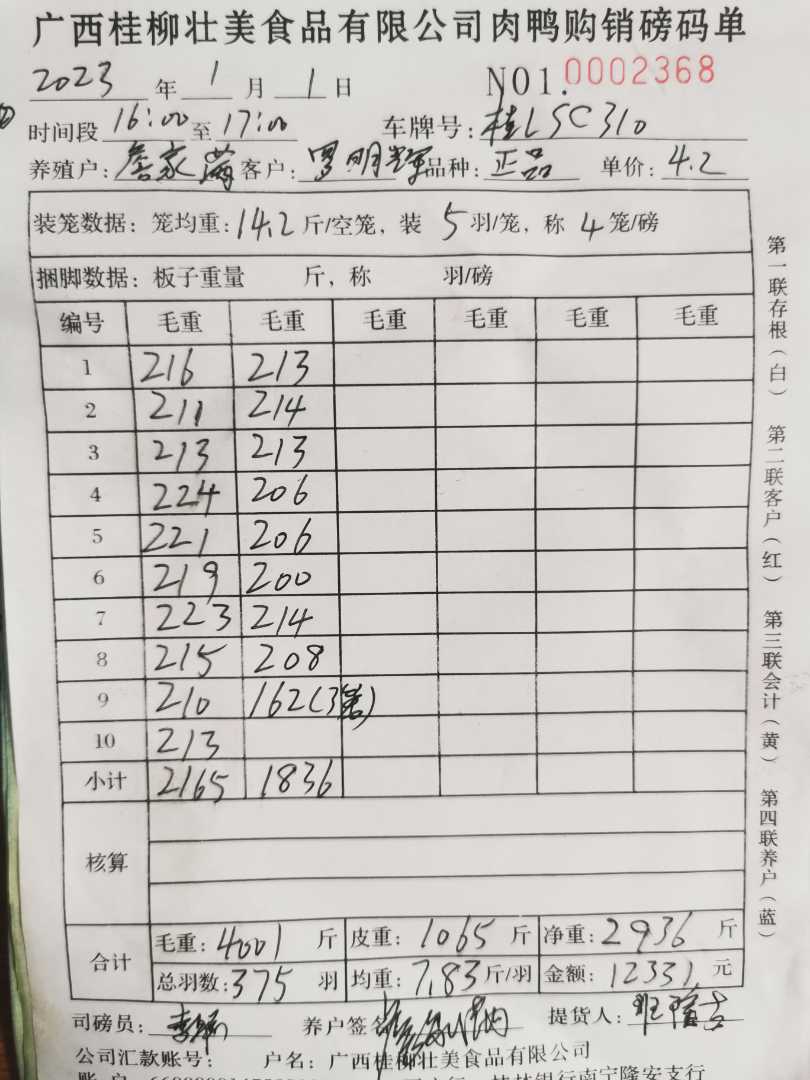 广西桂柳壮美食品有限公司肉鸭购销磅码单
2023 年 1 月 1 日 NO1. 0002368
时间段 16:00 至 17:00 车牌号: 桂LSC310
养殖户: 客户: 罗明辉 品种: 正品 单价: 4.2
装笼数据: 笼均重: 14.2 斤/空笼, 装 5 羽/笼, 称 4 笼/磅
捆脚数据: 板子重量 斤, 称 羽/磅
编号 毛重 毛重 毛重 毛重 毛重 毛重
1 216 213
2 211 214
3 213 213
4 224 206
5 221 206
6 219 200
7 223 214
8 215 208
9 210 162(3笼)
10 213
小计 2165 1836
核算
合计 毛重: 4001 斤 皮重: 1065 斤 净重: 2936 斤
总羽数: 375 羽 均重: 7.83 斤/羽 金额: 12331 元
司磅员: 养户签名 提货人:
公司汇款账号: 户名: 广西桂柳壮美食品有限公司
桂林银行南宁隆安支行
第一联存根(白) 第二联客户(红) 第三联会计(黄) 第四联养户(蓝)